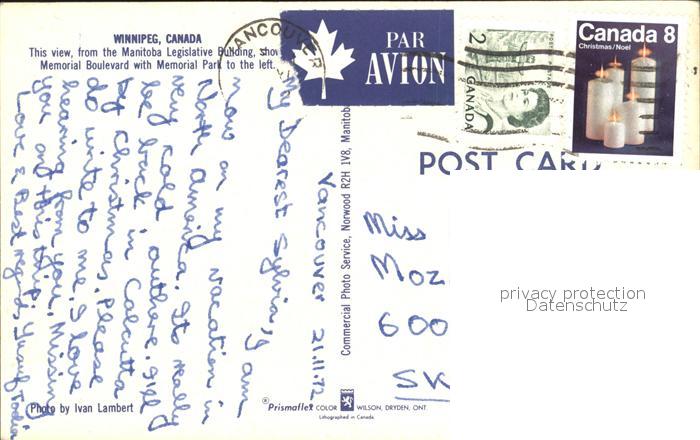 WINNIPEG, CANADA
This view, from the Manitoba Legislative Building, show
Memorial Boulevard with Memorial Park to the left.
VANCOUVER
PAR
AVION
2
CANADA
Canada 8
Christmas/Noël
POST CARD
Vancouver 21.11.72
My Dearest Sylvia, I am
now on my vacation in
North America. Its really
very cold outhere. I'll
be back in Calcutta
by Christmas. Please
do write to me. I love
hearing from you. Missing
you on this trip.
Love & Best regards, Yusuf
Commercial Photo Service, Norwood R2H 1V8, Manitoba
Miss
Moz
600
SK
privacy protection
Datenschutz
Photo by Ivan Lambert
®Prismaflex COLOR WILSON, DRYDEN, ONT.
Lithographed in Canada